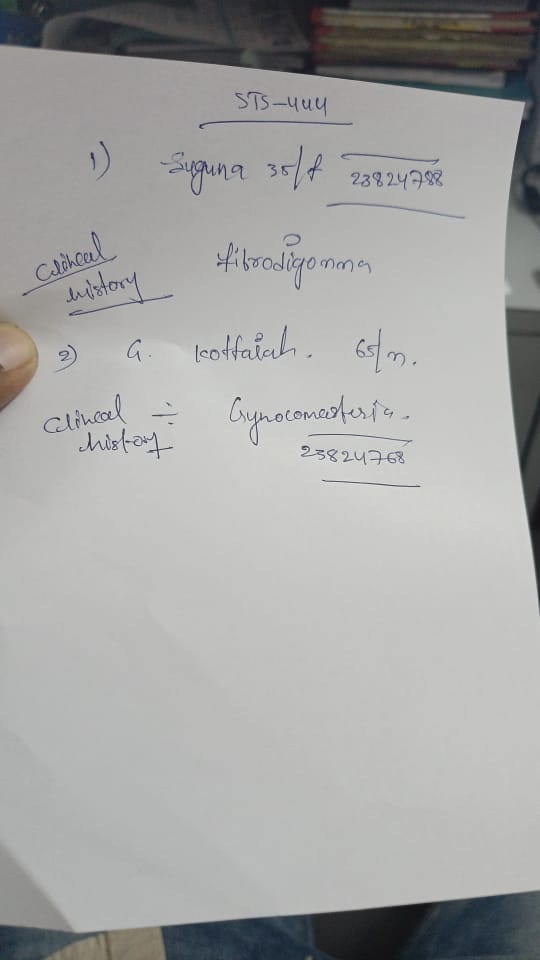 STS-444
1) Suguna 35/f 23824788
Clinical history ? fibrodigonma
2) G. kottaiah. 65/m.
Clinical history ÷ Gynocomasteria.
23824768